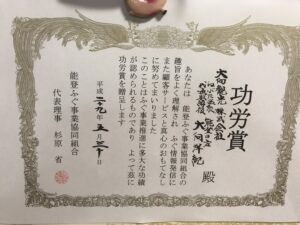 功労賞
大向観光株式会社
大向洋紀 殿
あなたは 能登ふぐ事業協同組合の
趣旨をよく理解され ふぐ情報発信に
また顧客サービスと真心のおもてなし
に努めてまいりました
このことはふぐ事業推進に多大な功績
が認められるものであり よって茲に
功労賞を贈呈します
平成二九年五月三十日
能登ふぐ事業協同組合
代表理事 杉原 省